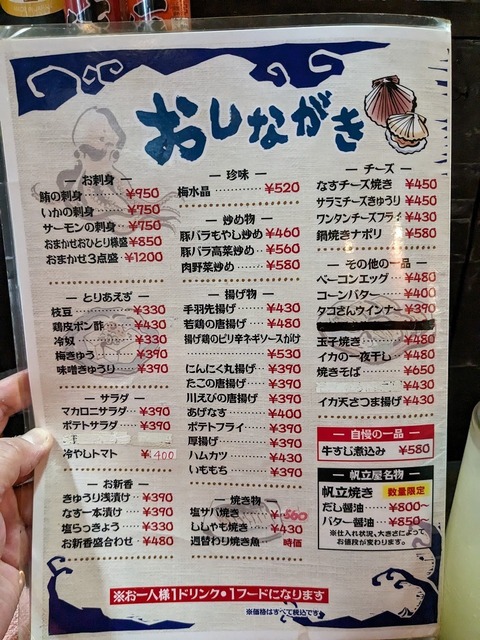 おしながき
お刺身
鮪の刺身 ¥750
いかの刺身 ¥750
サーモンの刺身 ¥750
おまかせおひとり様盛 ¥850
おまかせ3点盛 ¥1200
とりあえず
枝豆 ¥330
鶏皮ポン酢 ¥430
冷奴 ¥330
梅きゅう ¥390
味噌きゅうり ¥390
サラダ
マカロニサラダ ¥390
ポテトサラダ ¥390
冷やしトマト ¥400
お新香
きゅうり浅漬け ¥390
なす一本漬け ¥390
塩らっきょう ¥330
お新香盛合わせ ¥480
珍味
梅水晶 ¥520
炒め物
豚バラもやし炒め ¥460
豚バラ高菜炒め ¥560
肉野菜炒め ¥580
揚げ物
手羽先揚げ ¥430
若鶏の唐揚げ ¥480
揚げ鶏のピリ辛ネギソースがけ
¥530
にんにく丸揚げ ¥390
たこの唐揚げ ¥390
川えびの唐揚げ ¥390
あげなす ¥400
ポテトフライ ¥390
厚揚げ ¥390
ハムカツ ¥430
いももち ¥390
焼き物
塩サバ焼き ¥560
ししゃも焼き ¥430
週替わり焼き魚 時価
チーズ
なすチーズ焼き ¥450
サラミチーズきゅうり ¥450
ワンタンチーズフライ ¥430
鍋焼きナポリ ¥580
その他の一品
ベーコンエッグ ¥480
コーンバター ¥400
タコさんウインナー ¥390
玉子焼き ¥480
イカの一夜干し ¥480
焼きそば ¥650
¥430
イカ天さつま揚げ ¥430
自慢の一品
牛すじ煮込み ¥580
帆立屋名物
帆立焼き 数量限定
だし醤油 ¥800~
バター醤油 ¥850~
※仕入れ状況、大きさによって
お値段が変わります。
※お一人様1ドリンク●1フードになります
※価格はすべて税込です